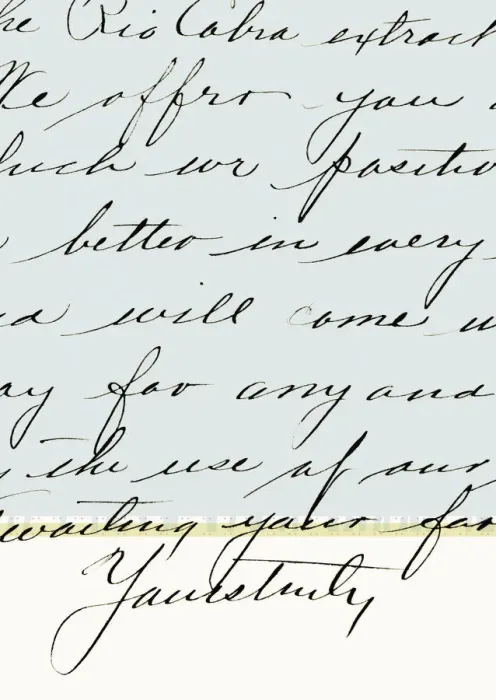 he Rio Cobra extract
We offer you
which we positiv
better in every
nd will come
ay for any and
the use of our
awaiting your fav
Yours truly